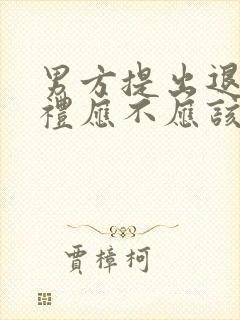 男方提出退
禮應不應該
賈樟柯